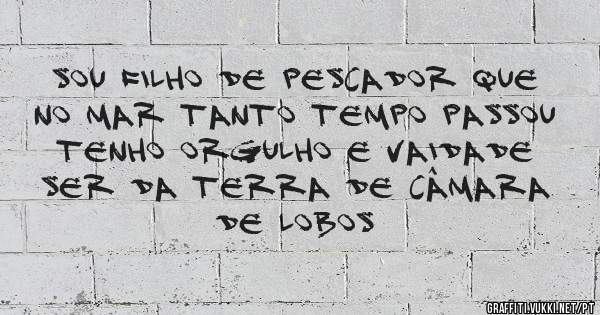 SOU FILHO DE PESCADOR QUE
NO MAR TANTO TEMPO PASSOU
TENHO ORGULHO E VAIDADE
SER DA TERRA DE CÂMARA
DE LOBOS
GRAFFITI.VUKKI.NET/PT